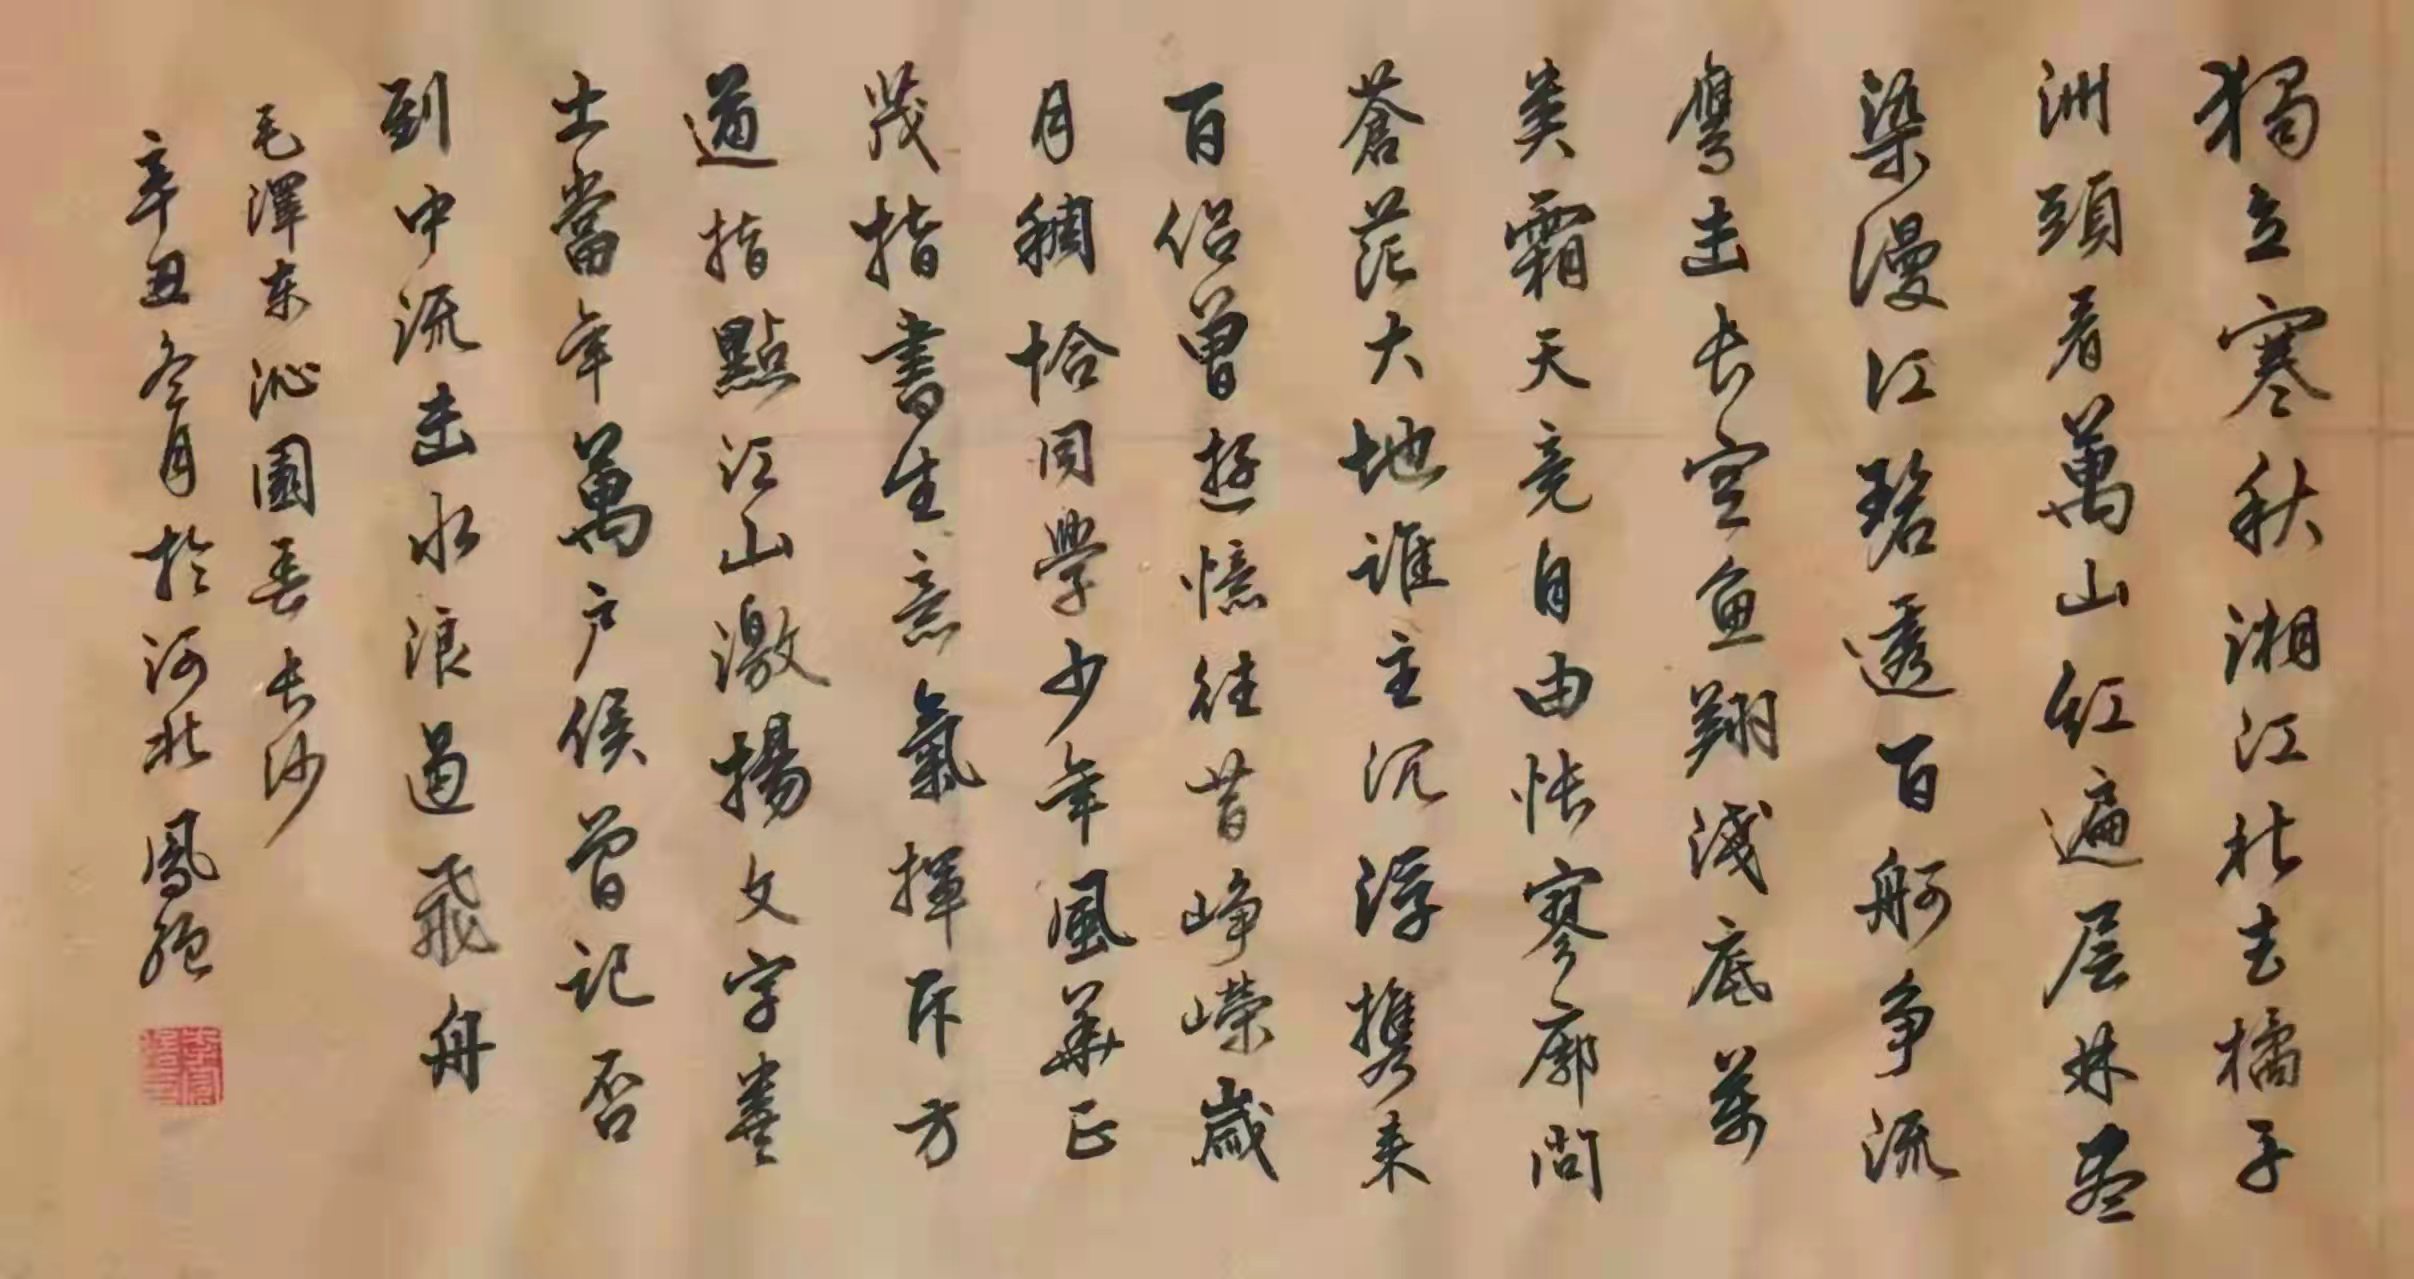 獨立寒秋湘江北去橘子
洲頭看萬山红遍层林尽
染漫江碧透百舸争流
鹰击长空鱼翔淺底万
类霜天竞自由怅寥廓问
蒼茫大地谁主沉浮携来
百侣曾遊憶往昔峥嶸歲
月稠恰同學少年風華正
茂指書生意氣揮斥方
遒指點江山激揚文字糞
土當年萬户侯曾记否
到中流击水浪遏飛舟
毛澤东沁園春长沙
辛丑冬月於河北鳳